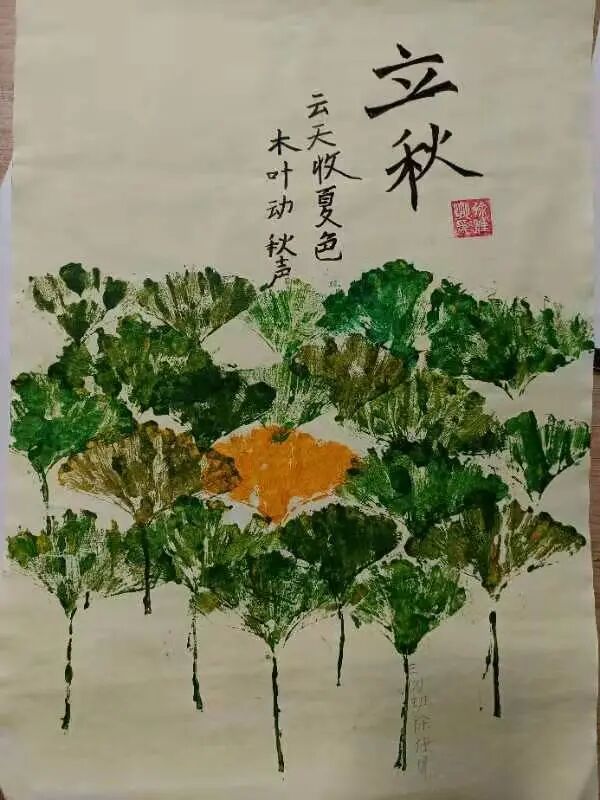 立秋
云天收夏色
木叶动秋声